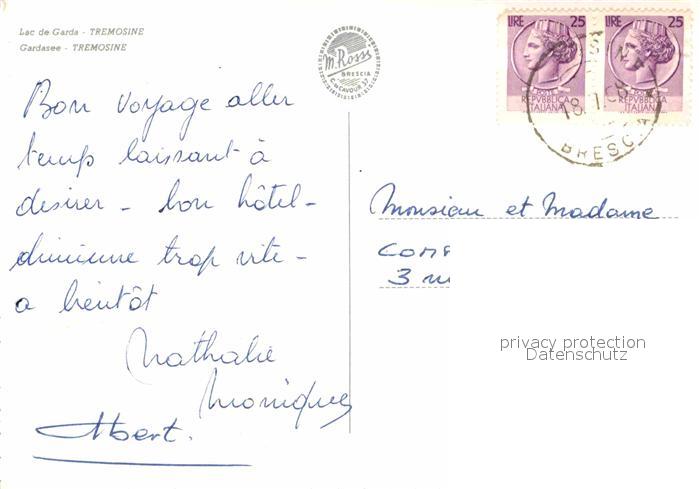 Lac de Garda - TREMOSINE
Gardasee - TREMOSINE
M. Rossi
BRESCIA
C. CAVOUR 37
LIRE 25
REPVBBLICA
ITALIANA
LIRE 25
REPVBBLICA
ITALIANA
BRESCIA
Bon voyage aller
temps laissant à
desirer - bon hôtel -
trop vite -
a bientôt
Nathalie
Monique
Albert.
Monsieur et Madame
COMF
3 m
privacy protection
Datenschutz